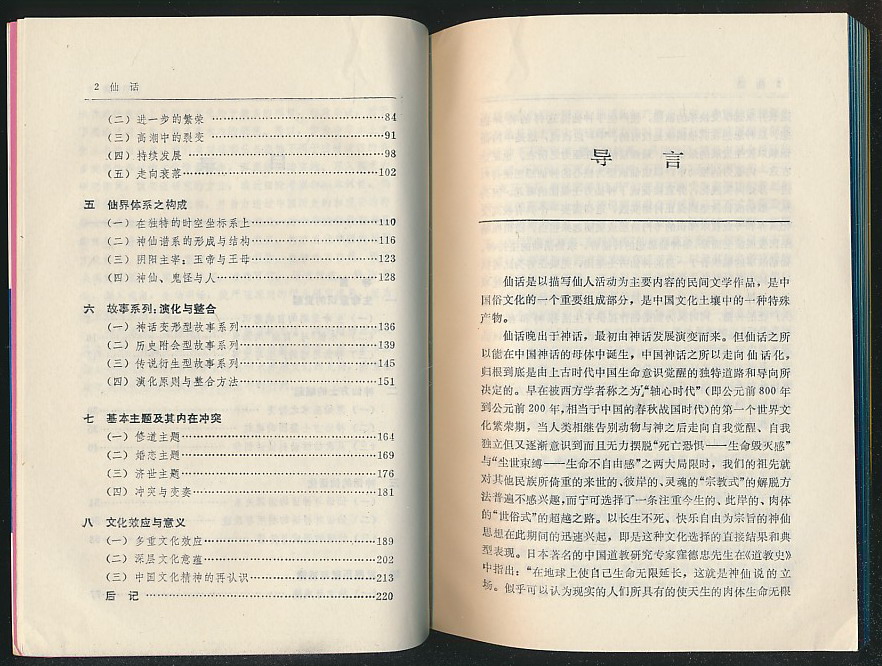 2 仙 话
（二）进一步的繁荣 ……………………………84
（三）高潮中的裂变 ……………………………91
（四）持续发展 …………………………………98
（五）走向衰落…………………………………102
五 仙界体系之构成
（一）在独特的时空坐标系上…………………110
（二）神仙谱系的形成与结构…………………116
（三）阴阳主宰：玉帝与王母…………………123
（四）神仙、鬼怪与人…………………………128
六 故事系列：演化与整合
（一）神话变形型故事系列……………………136
（二）历史附会型故事系列……………………139
（三）传说衍生型故事系列……………………145
（四）演化原则与整合方法……………………151
七 基本主题及其内在冲突
（一）修道主题…………………………………164
（二）婚恋主题…………………………………169
（三）济世主题…………………………………176
（四）冲突与变奏………………………………181
八 文化效应与意义
（一）多重文化效应……………………………189
（二）深层文化意蕴……………………………202
（三）中国文化精神的再认识…………………213
后 记 …………………………………………220
导 言
仙话是以描写仙人活动为主要内容的民间文学作品，是中
国俗文化的一个重要组成部分，是中国文化土壤中的一种特殊
产物。
仙话晚出于神话，最初由神话发展演变而来。但仙话之所
以能在中国神话的母体中诞生，中国神话之所以走向仙话化，
归根到底是由上古时代中国生命意识觉醒的独特道路和导向所
决定的。早在被西方学者称之为“轴心时代”（即公元前 800 年
到公元前 200 年，相当于中国的春秋战国时代）的第一个世界文
化繁荣期，当人类相继告别动物与神之后走向自我觉醒、自我
独立但又逐渐意识到而且无力摆脱“死亡恐惧——生命毁灭感”
与“尘世束缚——生命不自由感”之两大局限时，我们的祖先就
对其他民族所倚重的来世的、彼岸的、灵魂的“宗教式”的解脱方
法普遍不感兴趣，而宁可选择了一条注重今生的、此岸的、肉体
的“世俗式”的超越之路。以长生不死、快乐自由为宗旨的神仙
思想在此期间的迅速兴起，即是这种文化选择的直接结果和典
型表现。日本著名的中国道教研究专家窪德忠先生在《道教史》
中指出：“在地球上使自己生命无限延长，这就是神仙说的立
场。似乎可以认为现实的人们所具有的使天生的肉体生命无限